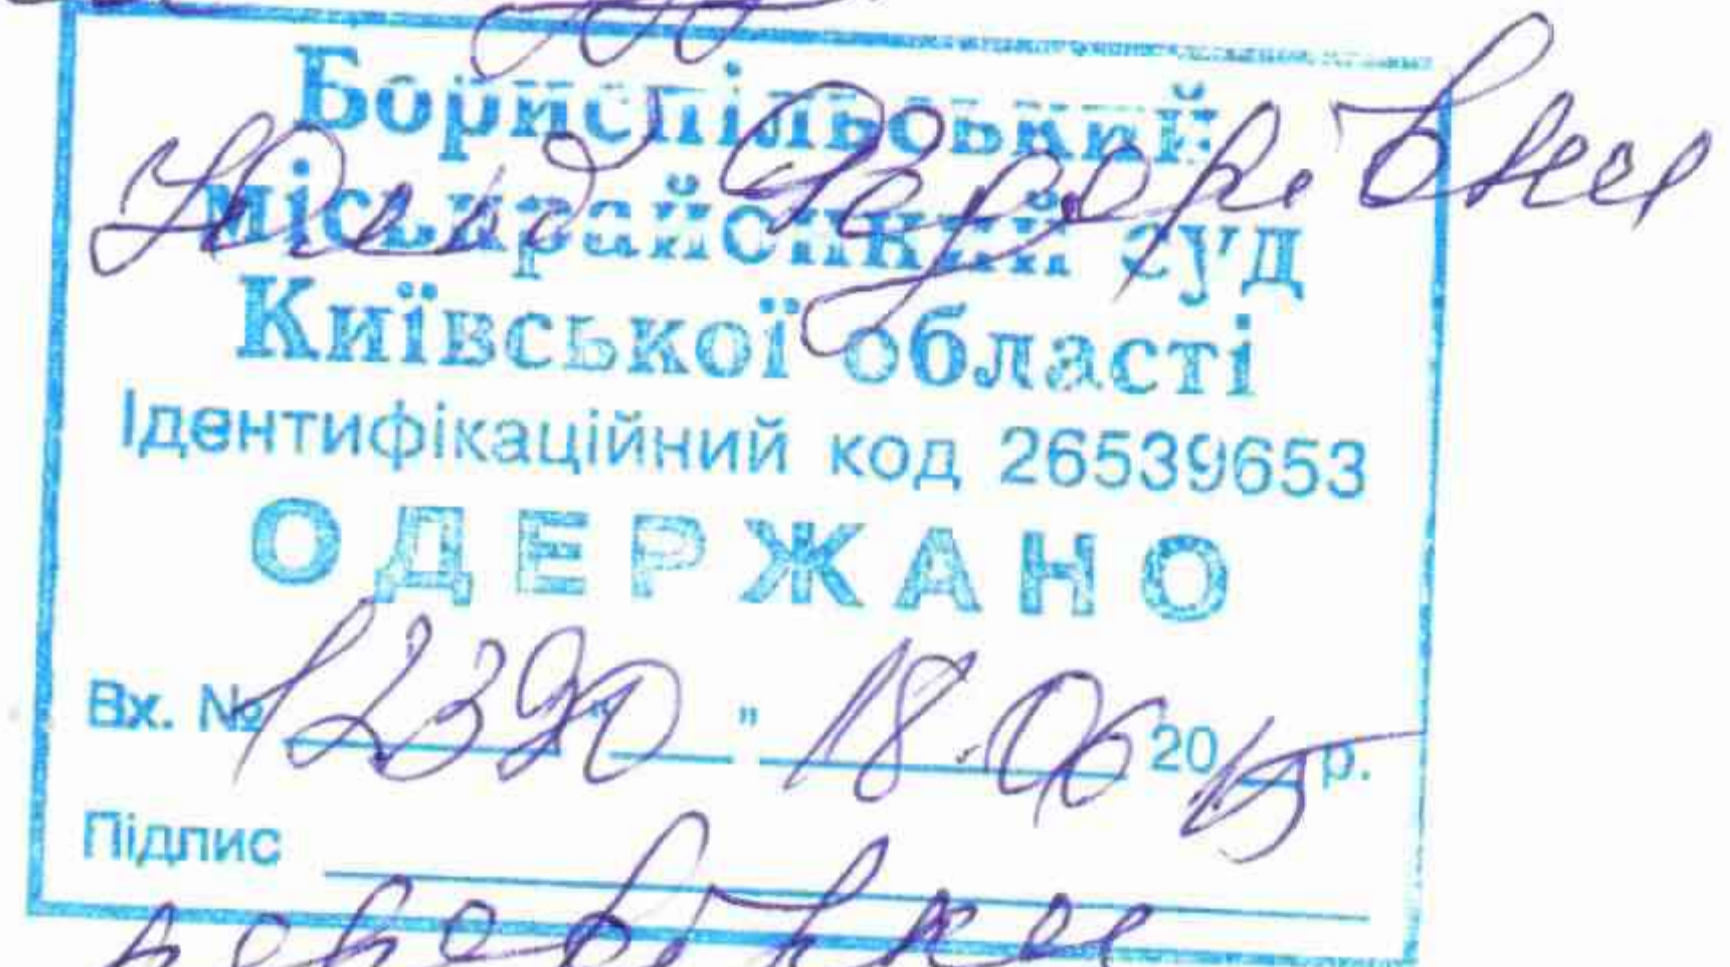 Бориспільський
міськрайонний суд
Київської області
Ідентифікаційний код 26539653
ОДЕРЖАНО
Вх. № 12390 " " 18.06 2015 р.
Підпис